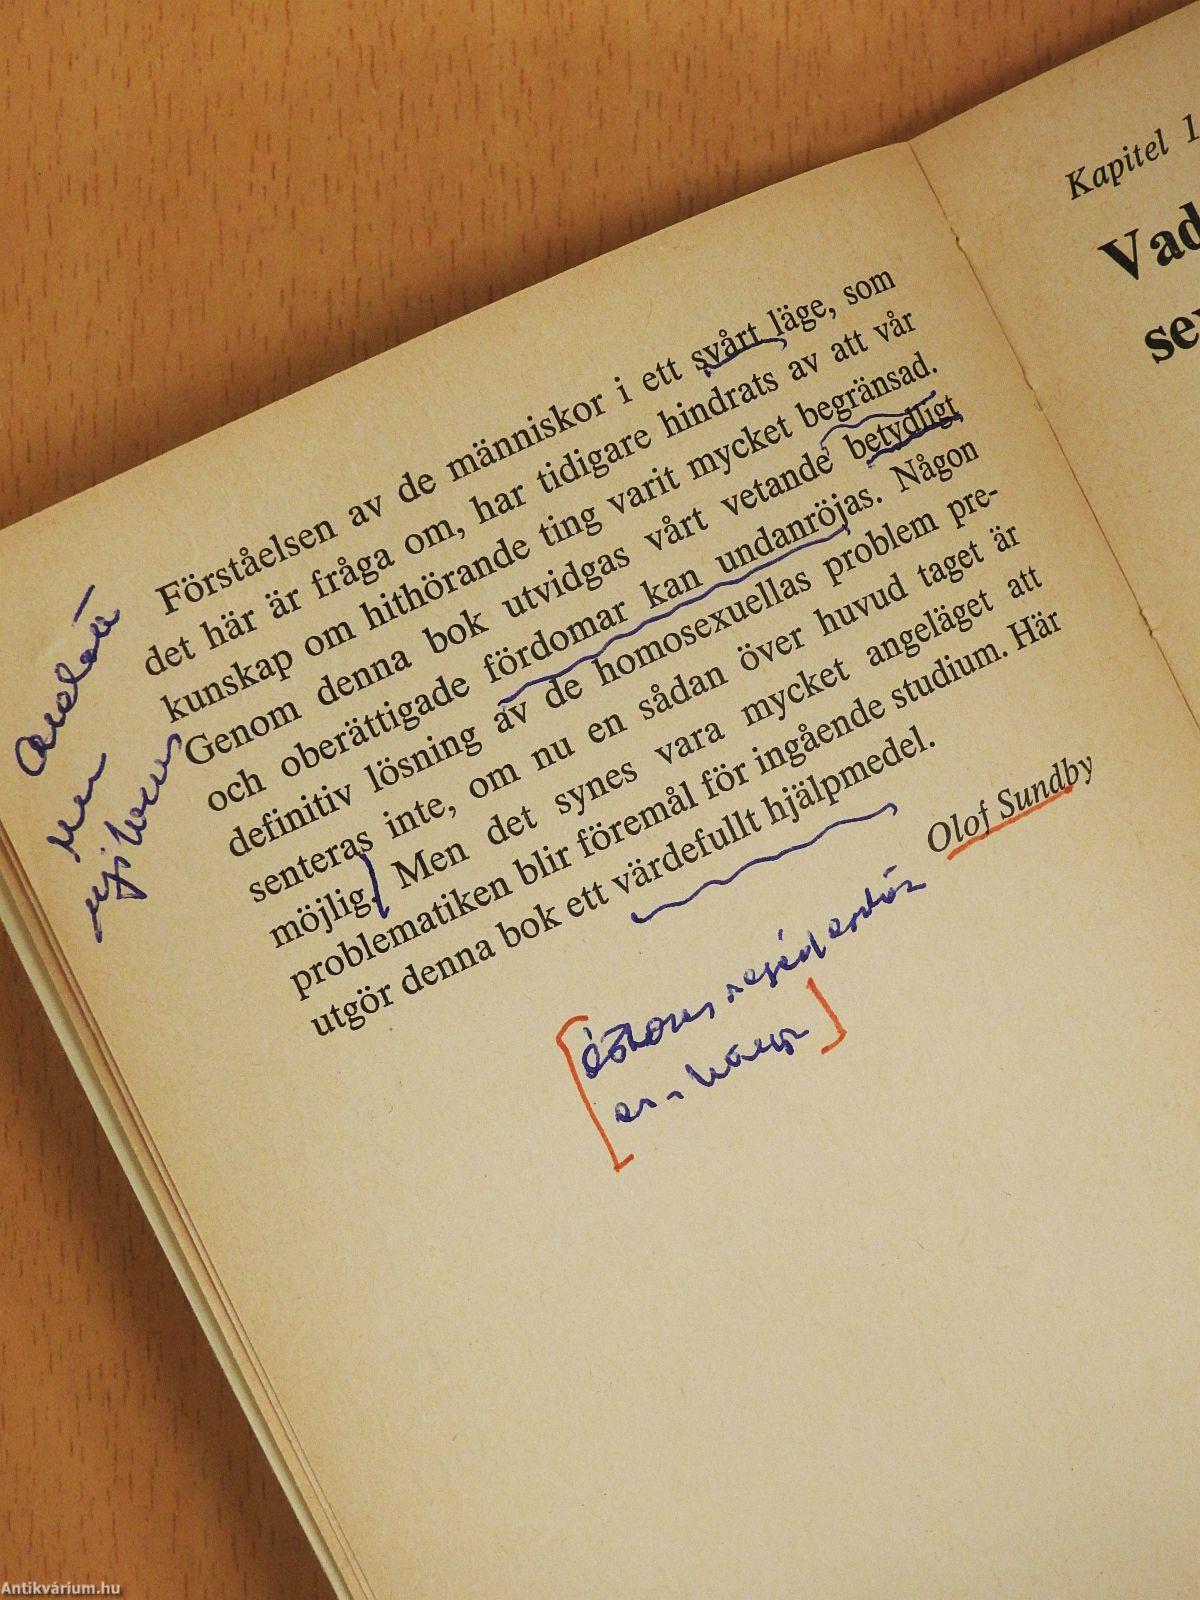 Förståelsen av de människor i ett svårt läge, som
det här är fråga om, har tidigare hindrats av att vår
kunskap om hithörande ting varit mycket begränsad.
Genom denna bok utvidgas vårt vetande betydligt
och oberättigade fördomar kan undanröjas. Någon
definitiv lösning av de homosexuellas problem pre-
senteras inte, om nu en sådan över huvud taget är
möjlig. Men det synes vara mycket angeläget att
problematiken blir föremål för ingående studium. Här
utgör denna bok ett värdefullt hjälpmedel.
Olof Sundby
Kapitel 1
Vad
Antikvárium.hu